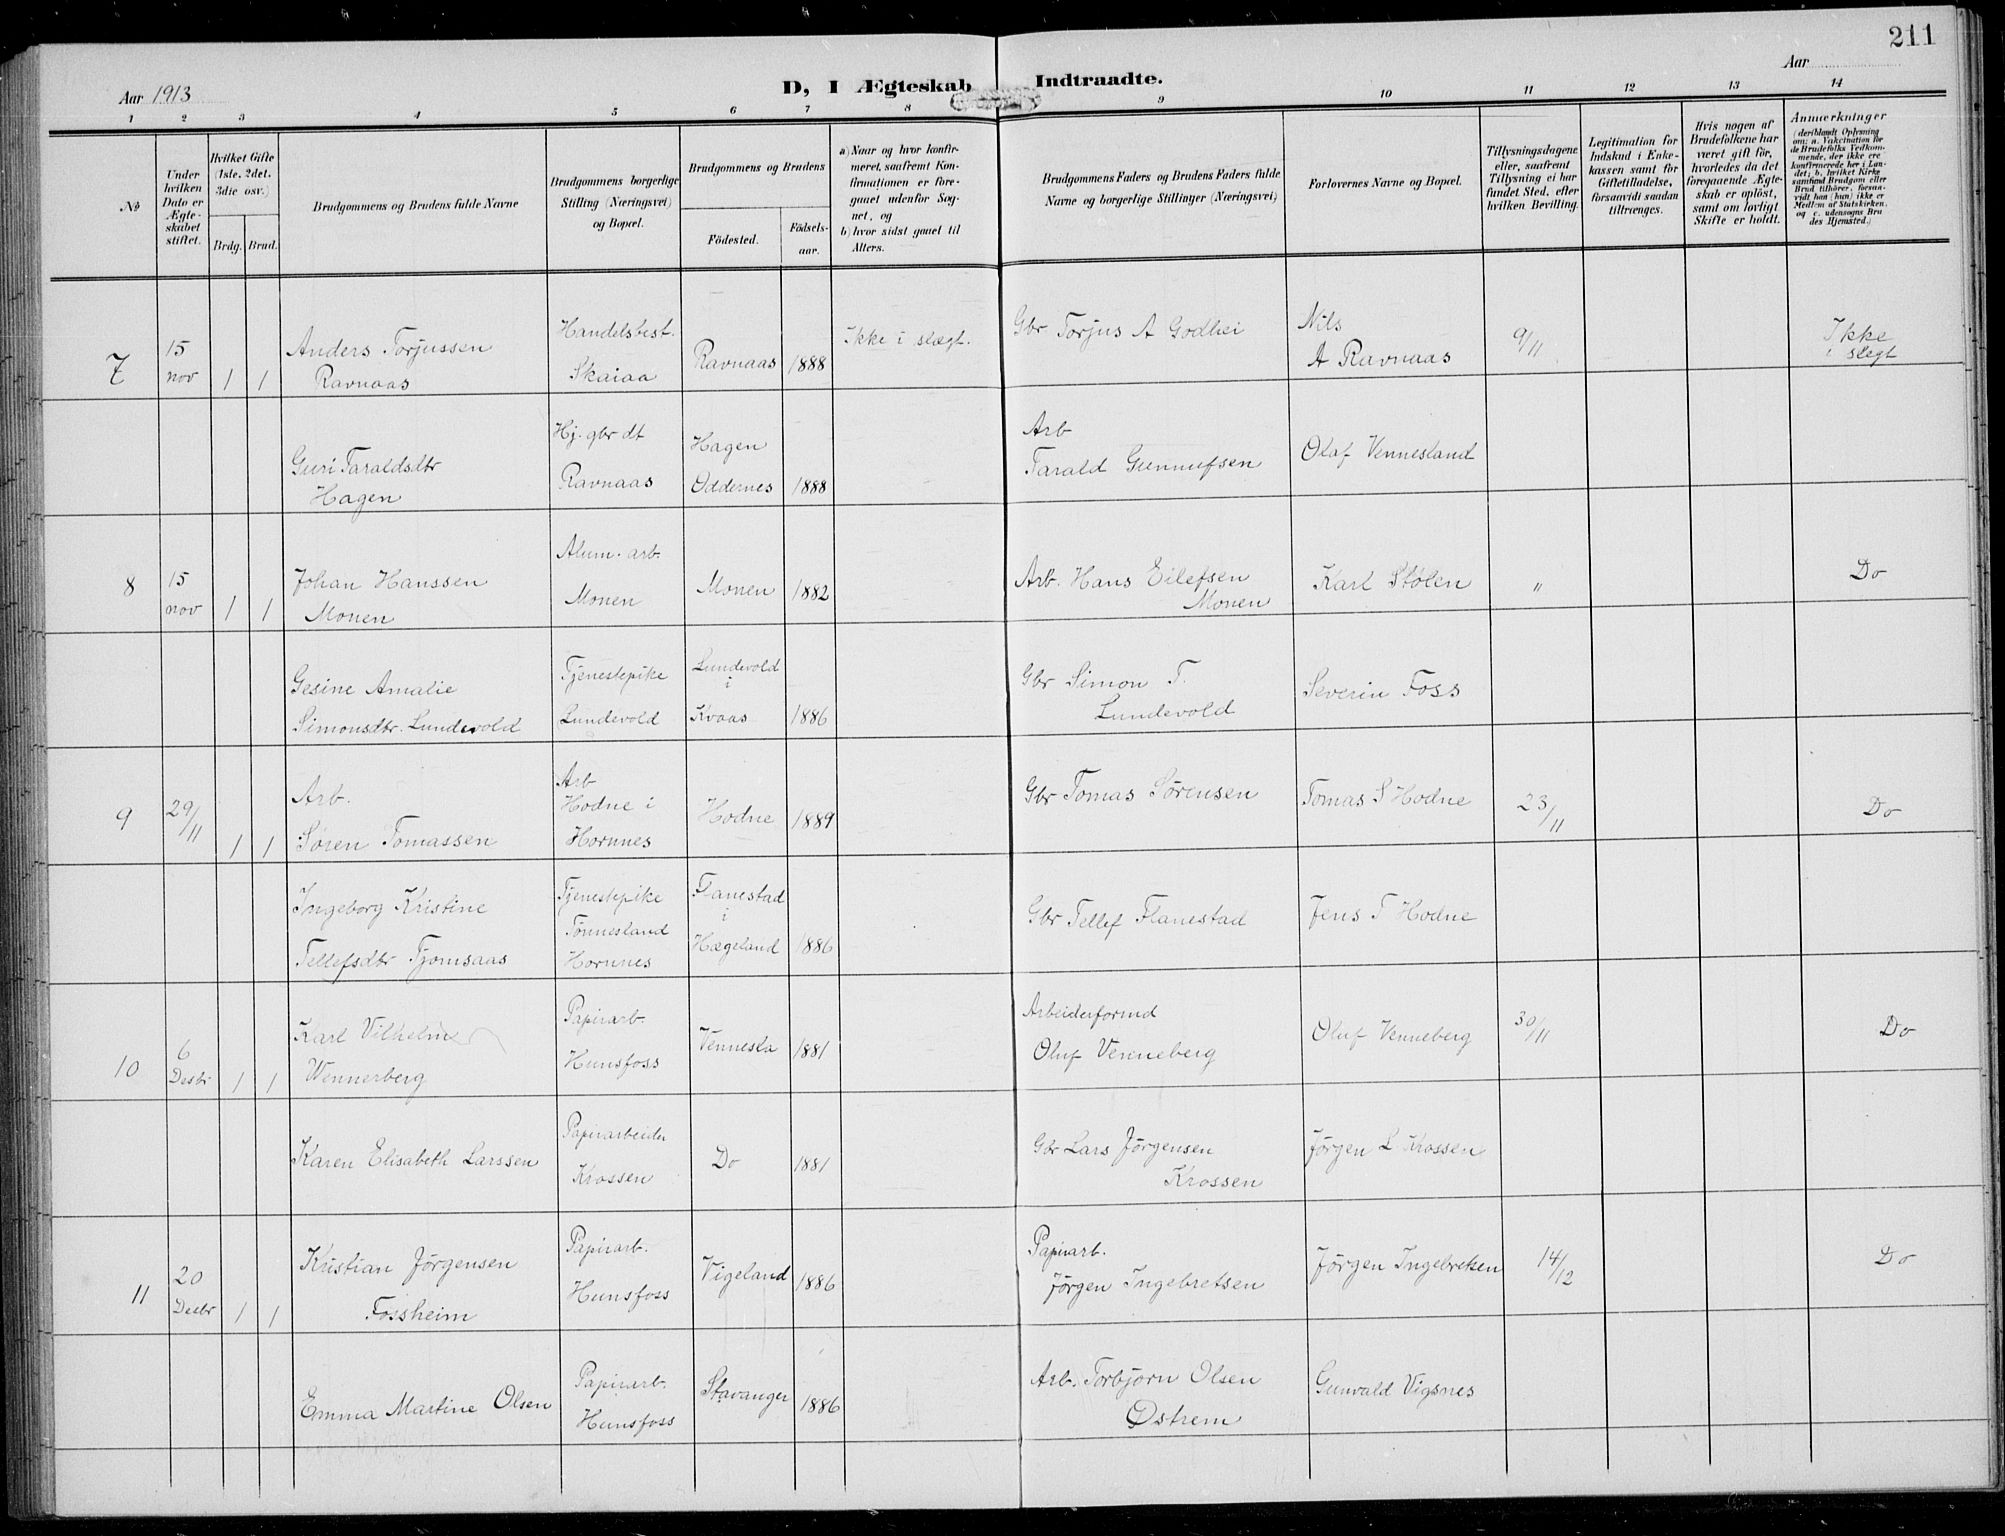 211
Aar 1913
D, I Ægteskab Indtraadte.
Aar
1 2 3 4 5 6 7 8 9 10 11 12 13 14
No
Under hvilken Dato er Ægteskabet stiftet.
Hvilket Gifte (1ste, 2det, 3die osv.)
Brdg. Brud.
Brudgommens og Brudens fulde Navne
Brudgommens borgerlige Stilling (Næringsvei) og Bopæl.
Brudgommens og Brudens
Födested. Födsels-aar.
a) Naar og hvor konfirmeret, saafremt Konfirmationen er foregaaet udenför Sognet, og
b) hvor sidst gaaet til Alters.
Brudgommens Faders og Brudens Faders fulde Navne og borgerlige Stillinger (Næringsvei)
Forlovernes Navne og Bopæl.
Tillysningsdagene eller, saafremt Tillysning ei har fundet Sted, efter hvilken Bevilling.
Legitimation for Indskud i Enkekassen samt for Giftetilladelse, forsaavidt saadan tiltrænges.
Hvis nogen af Brudefolkene har været gift för, hvorledes da det foregaaende Ægteskab er oplöst, samt om lovligt Skifte er holdt.
Anmærkninger
(deriblandt Oplysning om: a. Vakcination for de Brudefolks Vedkommende, der ikke ere konfirmerede her i Landet; b. hvilket Kirkesamfund Brudgom eller Brud tilhörer, forsaavidt han (hun) ikke er Medlem af Statskirken, og c. udensogns Brudes Hjemsted.)
7
15 nov
1 1
Anders Torjussen
Ravnaas
Handelsbest.
Skaiaa
Ravnaas 1888
Ikke i slægt.
Gbr Torjus A Godhei
Nils
A Ravnaas
9/11
Ikke
i slegt
Guri Taraldsdtr
Hagen
Hj. gbr dt
Ravnaas
Hagen
Oddernes 1888
Arb
Tarald Gunnufsen
Olaf Vennesland
8
15 nov
1 1
Johan Hanssen
Monen
Alum. arb.
Monen
Monen 1882
Arb. Hans Eilefsen
Monen
Karl Stølen
"
Do
Gesine Amalie
Simonsdtr. Lundevold
Tjenestepike
Lundevold
Lundevold
i
Kvaas 1886
Gbr Simon T.
Lundevold
Severin Foss
9
29/11
1 1
Arb.
Søren Tomassen
Arb
Hodne i
Hornnes
Hodne 1889
Gbr Tomas Sörensen
Tomas S Hodne
23/11
Do
Ingeborg Kristine
Tellefsdtr Tjomsaas
Tjenestepike
Tönnesland
Hornnes
Flanestad
i
Hægeland 1886
Gbr Tellef Flanestad
Jens T Hodne
10
6 Desbr
1 1
Karl Vilhelm
Wennerberg
Papirarb.
Hunsfoss
Vennesla 1881
Arbeiderformd
Oluf Venneberg
Oluf Venneberg
30/11
Do
Karen Elisabeth Larssen
Papirarbeider
Krossen
Do 1881
Gbr Lars Jørgensen
Krossen
Jørgen L Krossen
11
20 Desbr
1 1
Kristian Jørgensen
Fossheim
Papirarb.
Hunsfoss
Vigeland 1886
Papirarb.
Jørgen Ingebretsen
Jørgen Ingebretsen
14/12
Do
Emma Martine Olsen
Papirarb.
Hunsfoss
Stavanger 1886
Arb. Torbjørn Olsen
Østrem
Gunvald Vigsnes